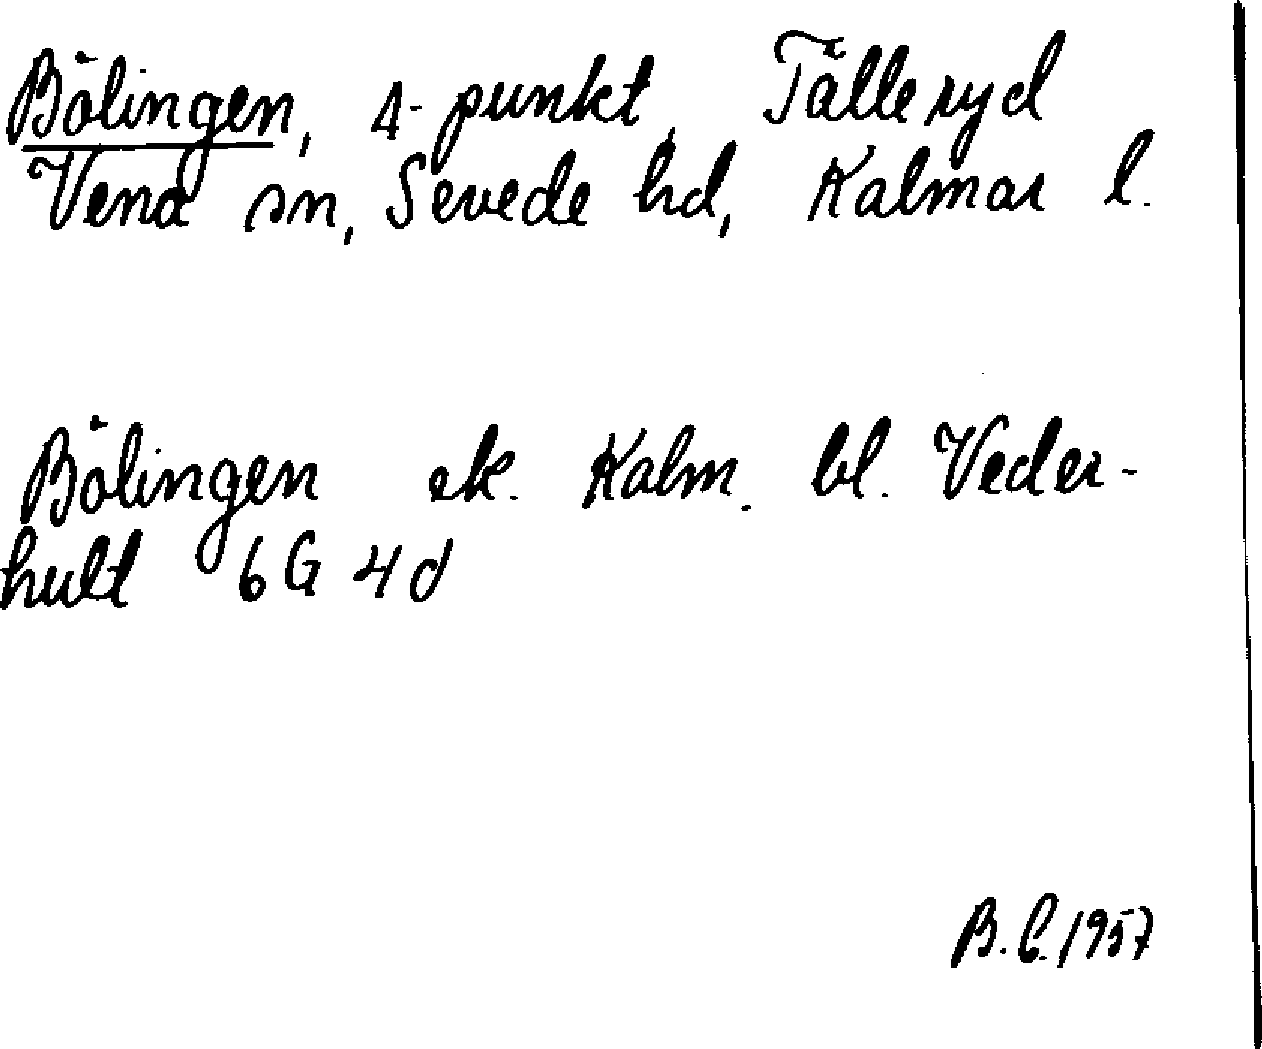 Bölingen, 4-punkt, Tälleryd
Vena sn, Sevede hd, Kalmar l.
Bölingen ek. Kalm. bl. Veder-
hult 6G 4d
B.C. 1957